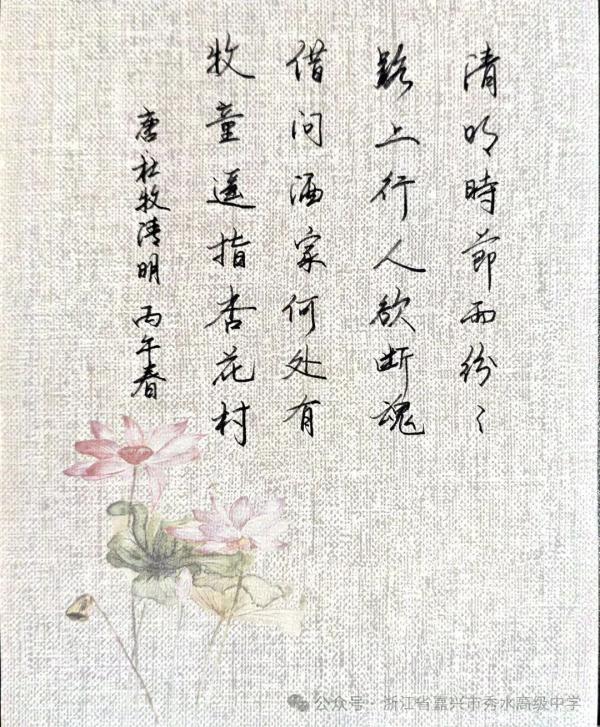 清明時節雨紛〻
路上行人欲断魂
借问酒家何处有
牧童遥指杏花村
唐杜牧清明 丙午春
公众号·浙江省嘉兴市秀水高级中学